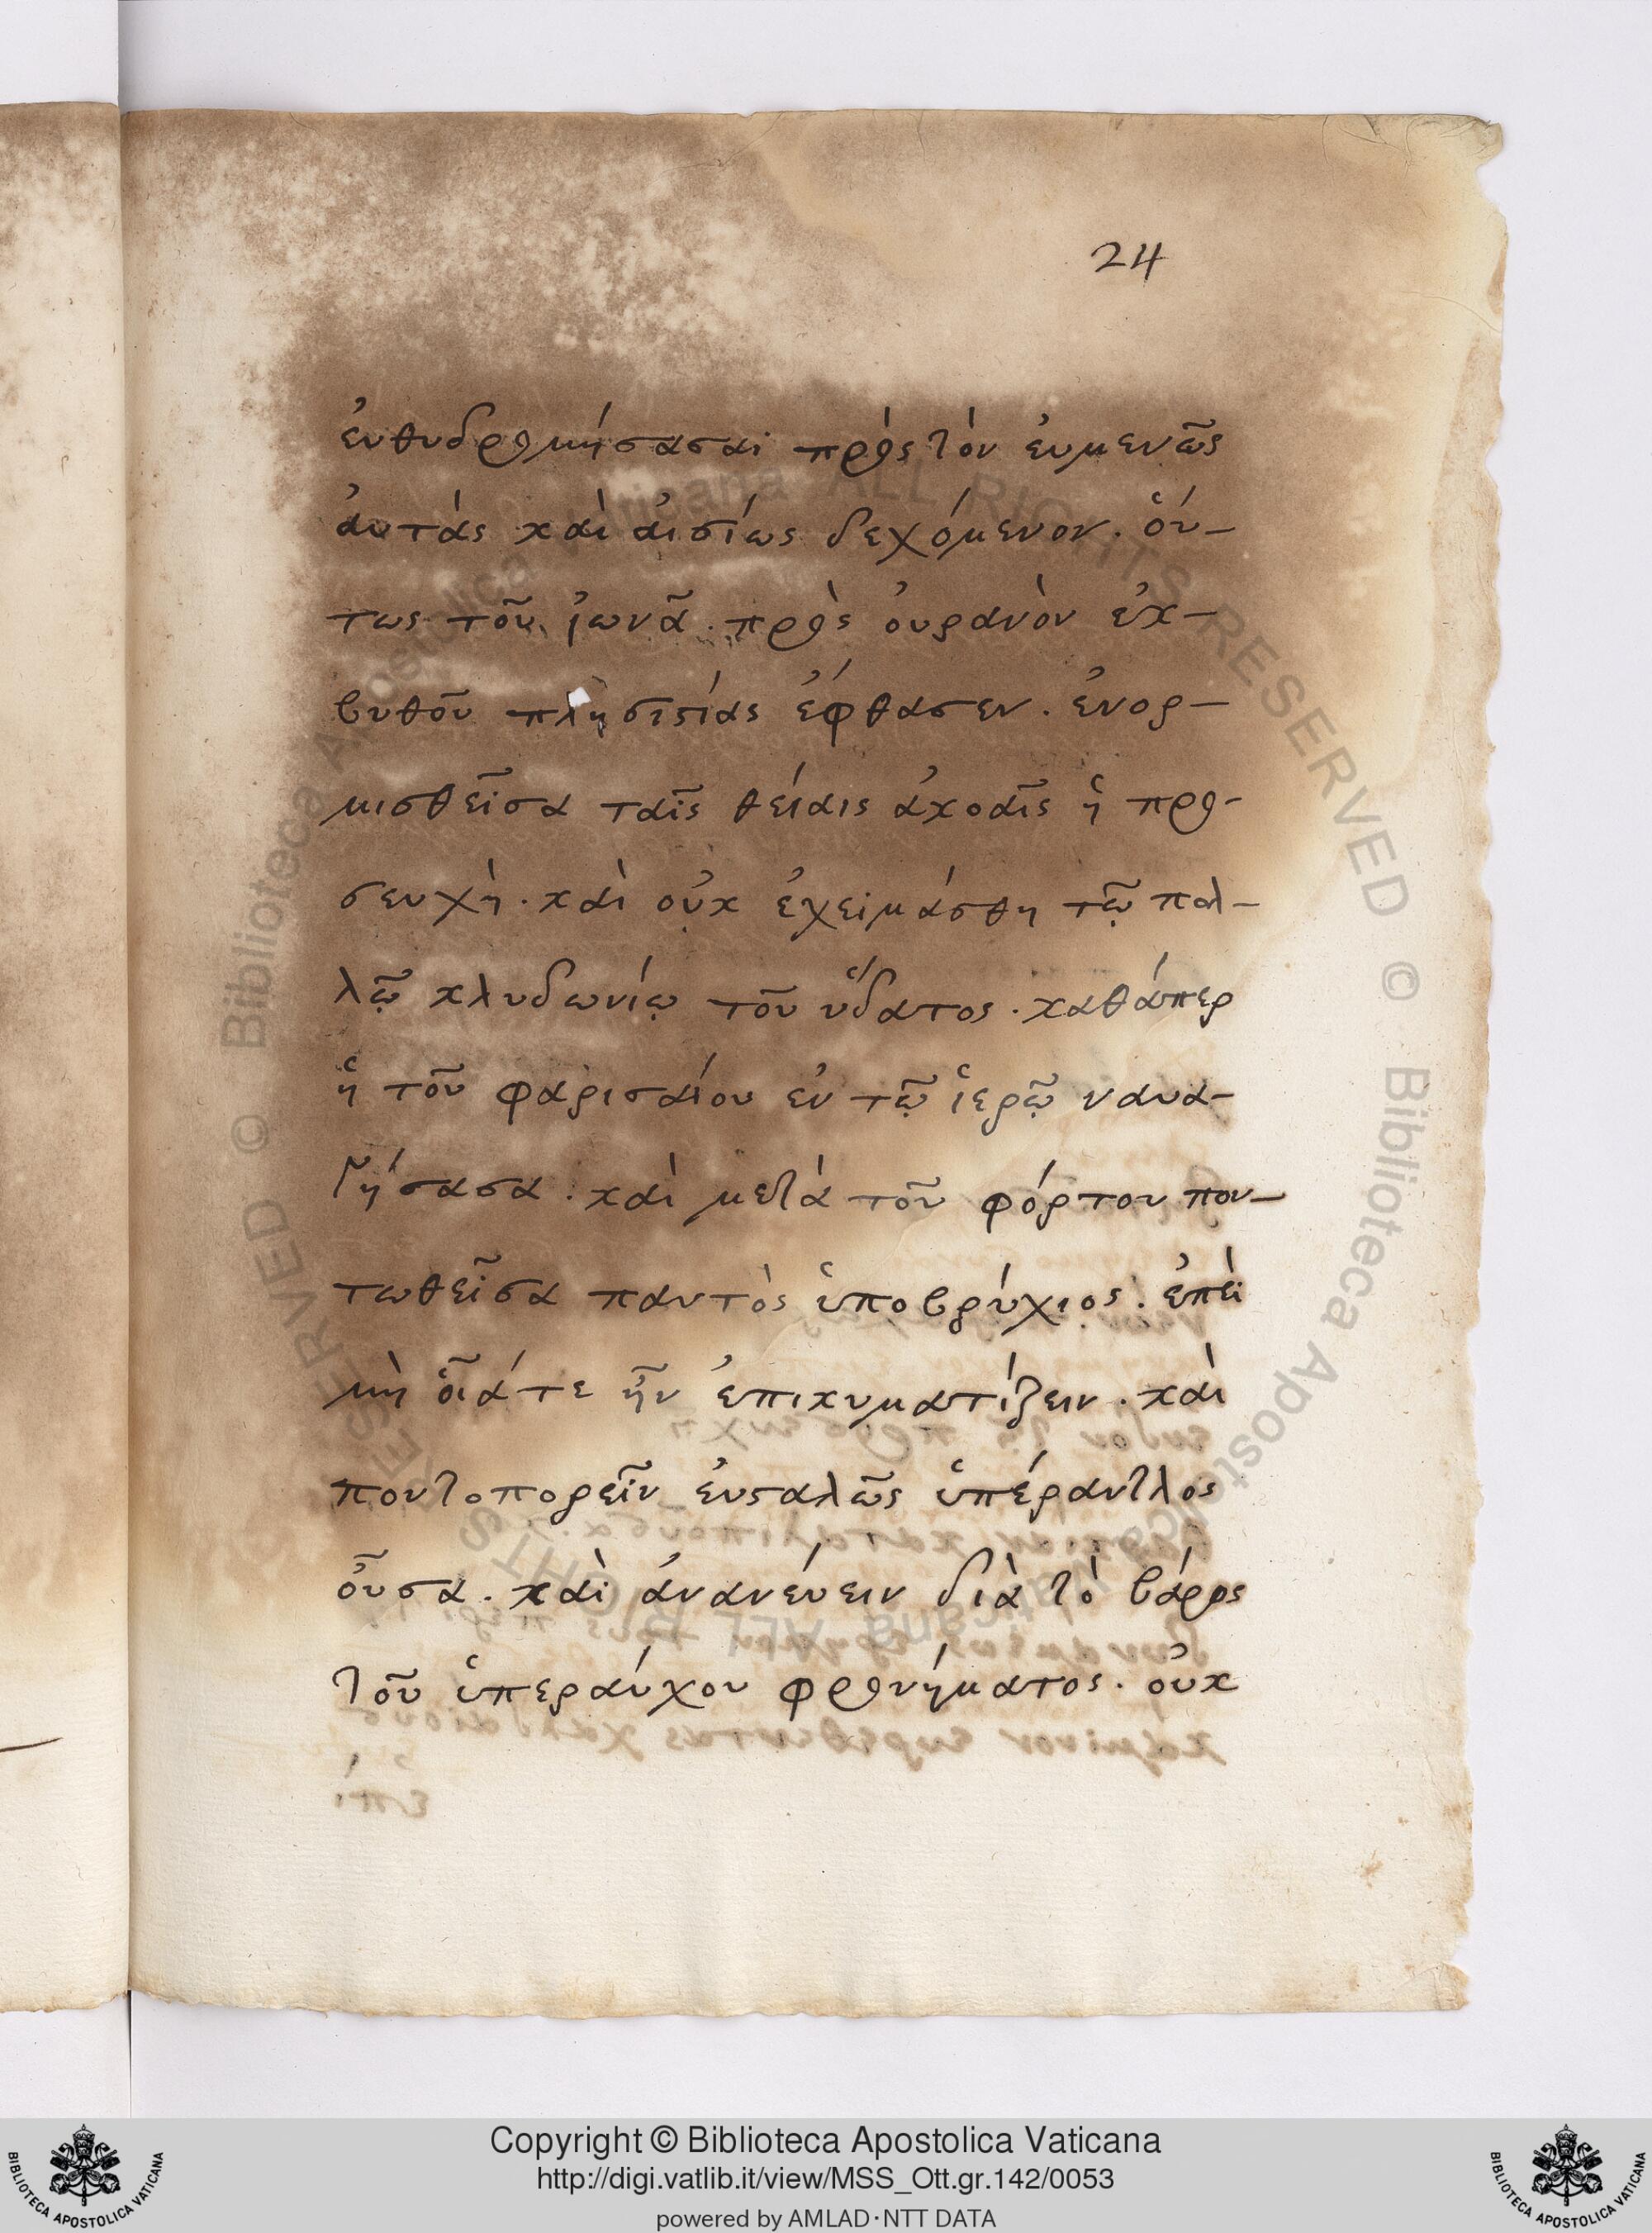 24
ἐυθυδρομήσασαι πρὸς τὸν ἐυμενῶς
ἀυτὰς καὶ ἀισίως δεχόμενον. ὅυ-
τως τοῦ ἰωνᾶ. πρὸς ὀυρανὸν ἐκ-
βυθοῦ πλησιστίας ἔφθασεν. ἐνορ-
μισθεῖσα ταῖς θείαις ἀκοαῖς ἡ προ-
σευχὴ. καὶ οὐκ ἐχειμάσθη τῶ πολ-
λῶ κλυδωνίω τοῦ ὕδατος. καθάπερ
ἡ τοῦ φαρισαίου ἐν τῶ ἱερῶ ναυα-
γήσασα. καὶ μετὰ τοῦ φόρτου πον-
τωθεῖσα παντὸς ὑποβρύχιος. ἐπεὶ
μὴ οἵα τε ἦν ἐπικυματίζειν. καὶ
ποντοπορεῖν ἐυσταλῶς ὑπέραντλος
οὖσα. καὶ ἀνανέυειν διὰ τὸ βάρος
τοῦ ὑπεραύχου φρονήματος. οὐκ
Copyright © Biblioteca Apostolica Vaticana
http://digi.vatlib.it/view/MSS_Ott.gr.142/0053
powered by AMLAD·NTT DATA
BIBLIOTECA APOSTOLICA VATICANA
BIBLIOTECA APOSTOLICA VATICANA
© Biblioteca Apostolica Vaticana ALL RIGHTS RESERVED © Biblioteca Apostolica Vaticana ALL RIGHTS RESERVED